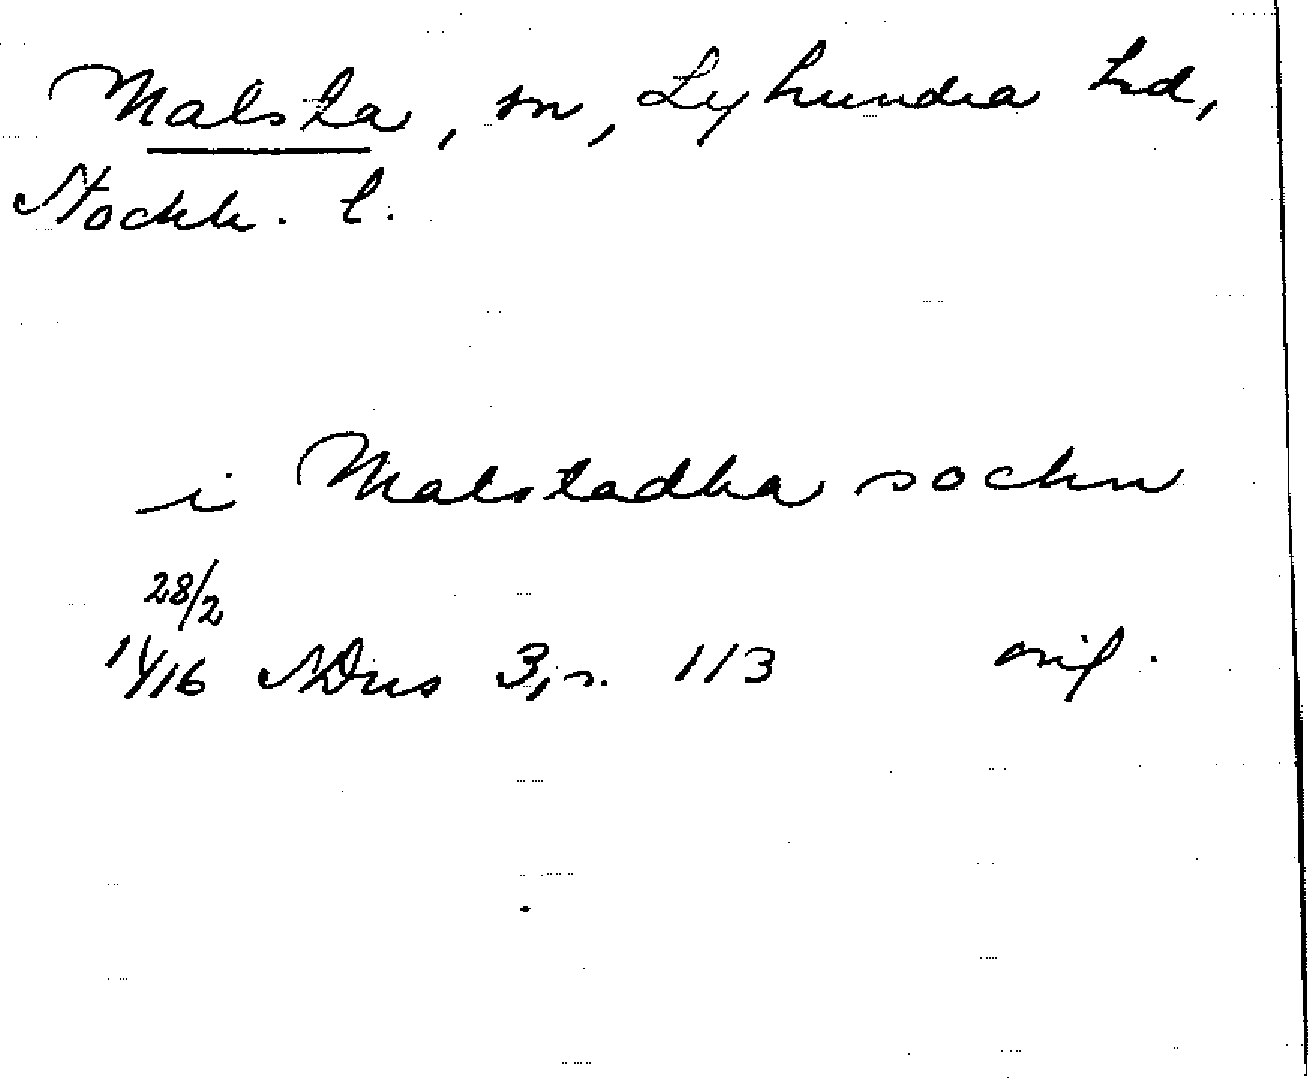 Malsta, sn, Lyhundra hd,
Stockh. l.
i Malstadha sochn
28/2
1416 SDns 3, s. 113 orig.